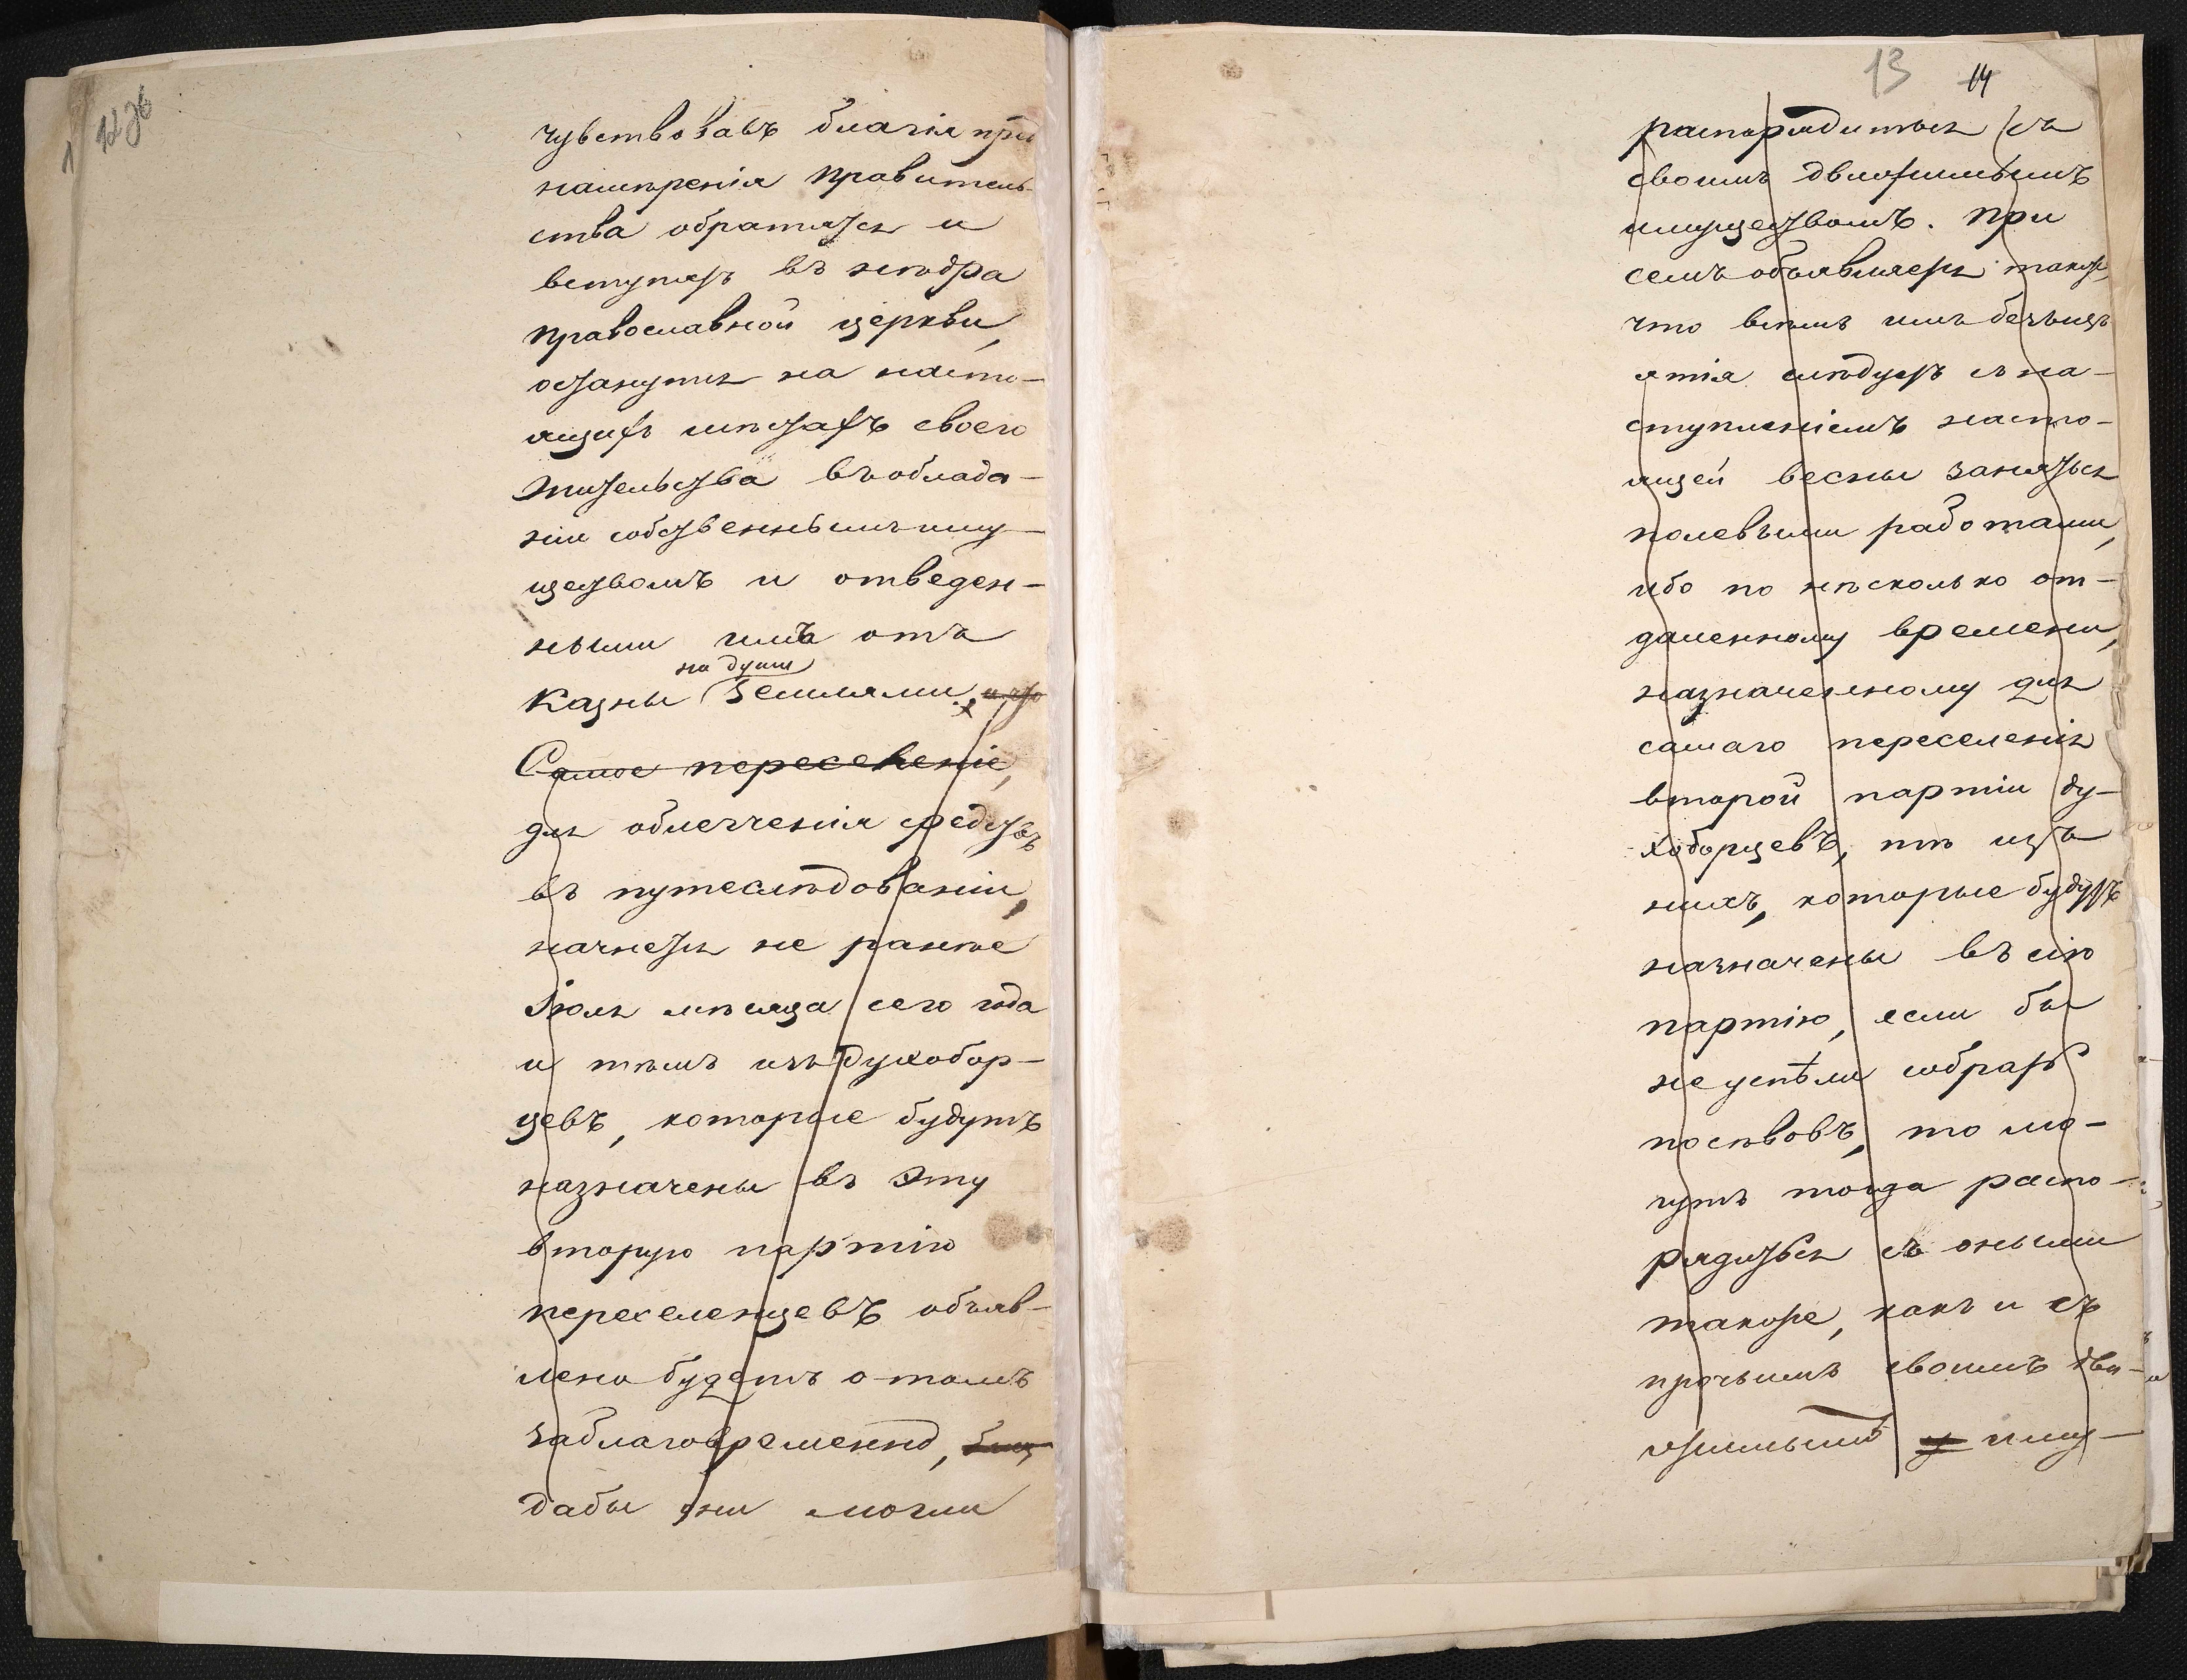 чувствовавъ благія пред
намѣренія правитель-
ства обратятся и
вступятъ въ нѣдра
православной церкви,
останутся на насто-
ящихъ мѣстахъ своего
жительства въ облада-
ніи собственнымъ иму-
ществомъ и отведен-
ными имъ отъ
на душе
казны землями,
Самое переселеніе,
для облегченія средствъ
въ путеслѣдованіи,
начнется не ранѣе
Іюля мѣсяца сего года
и тѣмъ изъ духобор-
цевъ, которые будутъ
назначены въ эту
вторую партію
переселенцевъ объяв-
лено будетъ о томъ
заблаговременно,
дабы они могли
13 14
распорядиться съ
своимъ движимымъ
имуществомъ. При
семъ объявляется также,
что всѣмъ имъ безъизъ
ятія слѣдуетъ съ на-
ступленіемъ насто-
ящей весны заняться
полевыми работами,
ибо по нѣсколько от-
даленному времени,
назначенному для
самаго переселенія
второй партіи ду-
хоборцевъ, тѣ изъ
нихъ, которые будутъ
назначены въ сію
партію, если бы
не успѣли собрать
посѣвовъ, то мо-
гутъ тогда распо-
рядиться съ оными
также, какъ и съ
прочьимъ своимъ дви-
жимымъ иму-